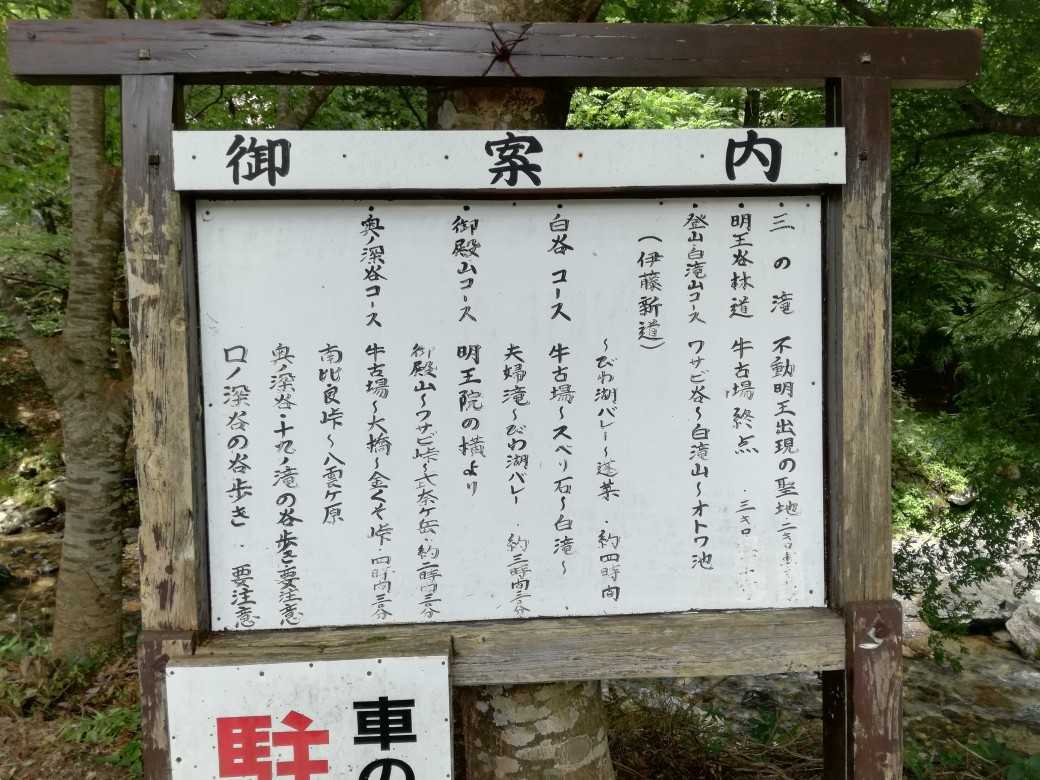 御案内
・三の滝 不動明王出現の聖地 二キロ
・明王谷林道 牛古場終点 ・三キロ
・登山白滝山コース ワサビ谷〜白滝山〜オトワ池
(伊藤新道)
〜びわ湖バレー〜蓬莱 ・約四時間
・白谷コース 牛古場〜スベリ石〜白滝〜
夫婦滝〜びわ湖バレー ・約三時間三分
・御殿山コース 明王院の横より
御殿山〜ワサビ峠〜武奈ヶ岳・約二時間三分
・奥ノ深谷コース 牛古場〜大橋〜金くそ峠・四時間三分
南比良峠〜八雲ヶ原
奥ノ深谷・十九ノ滝の谷歩き要注意
口ノ深谷の谷歩き ・要注意
車の
駐